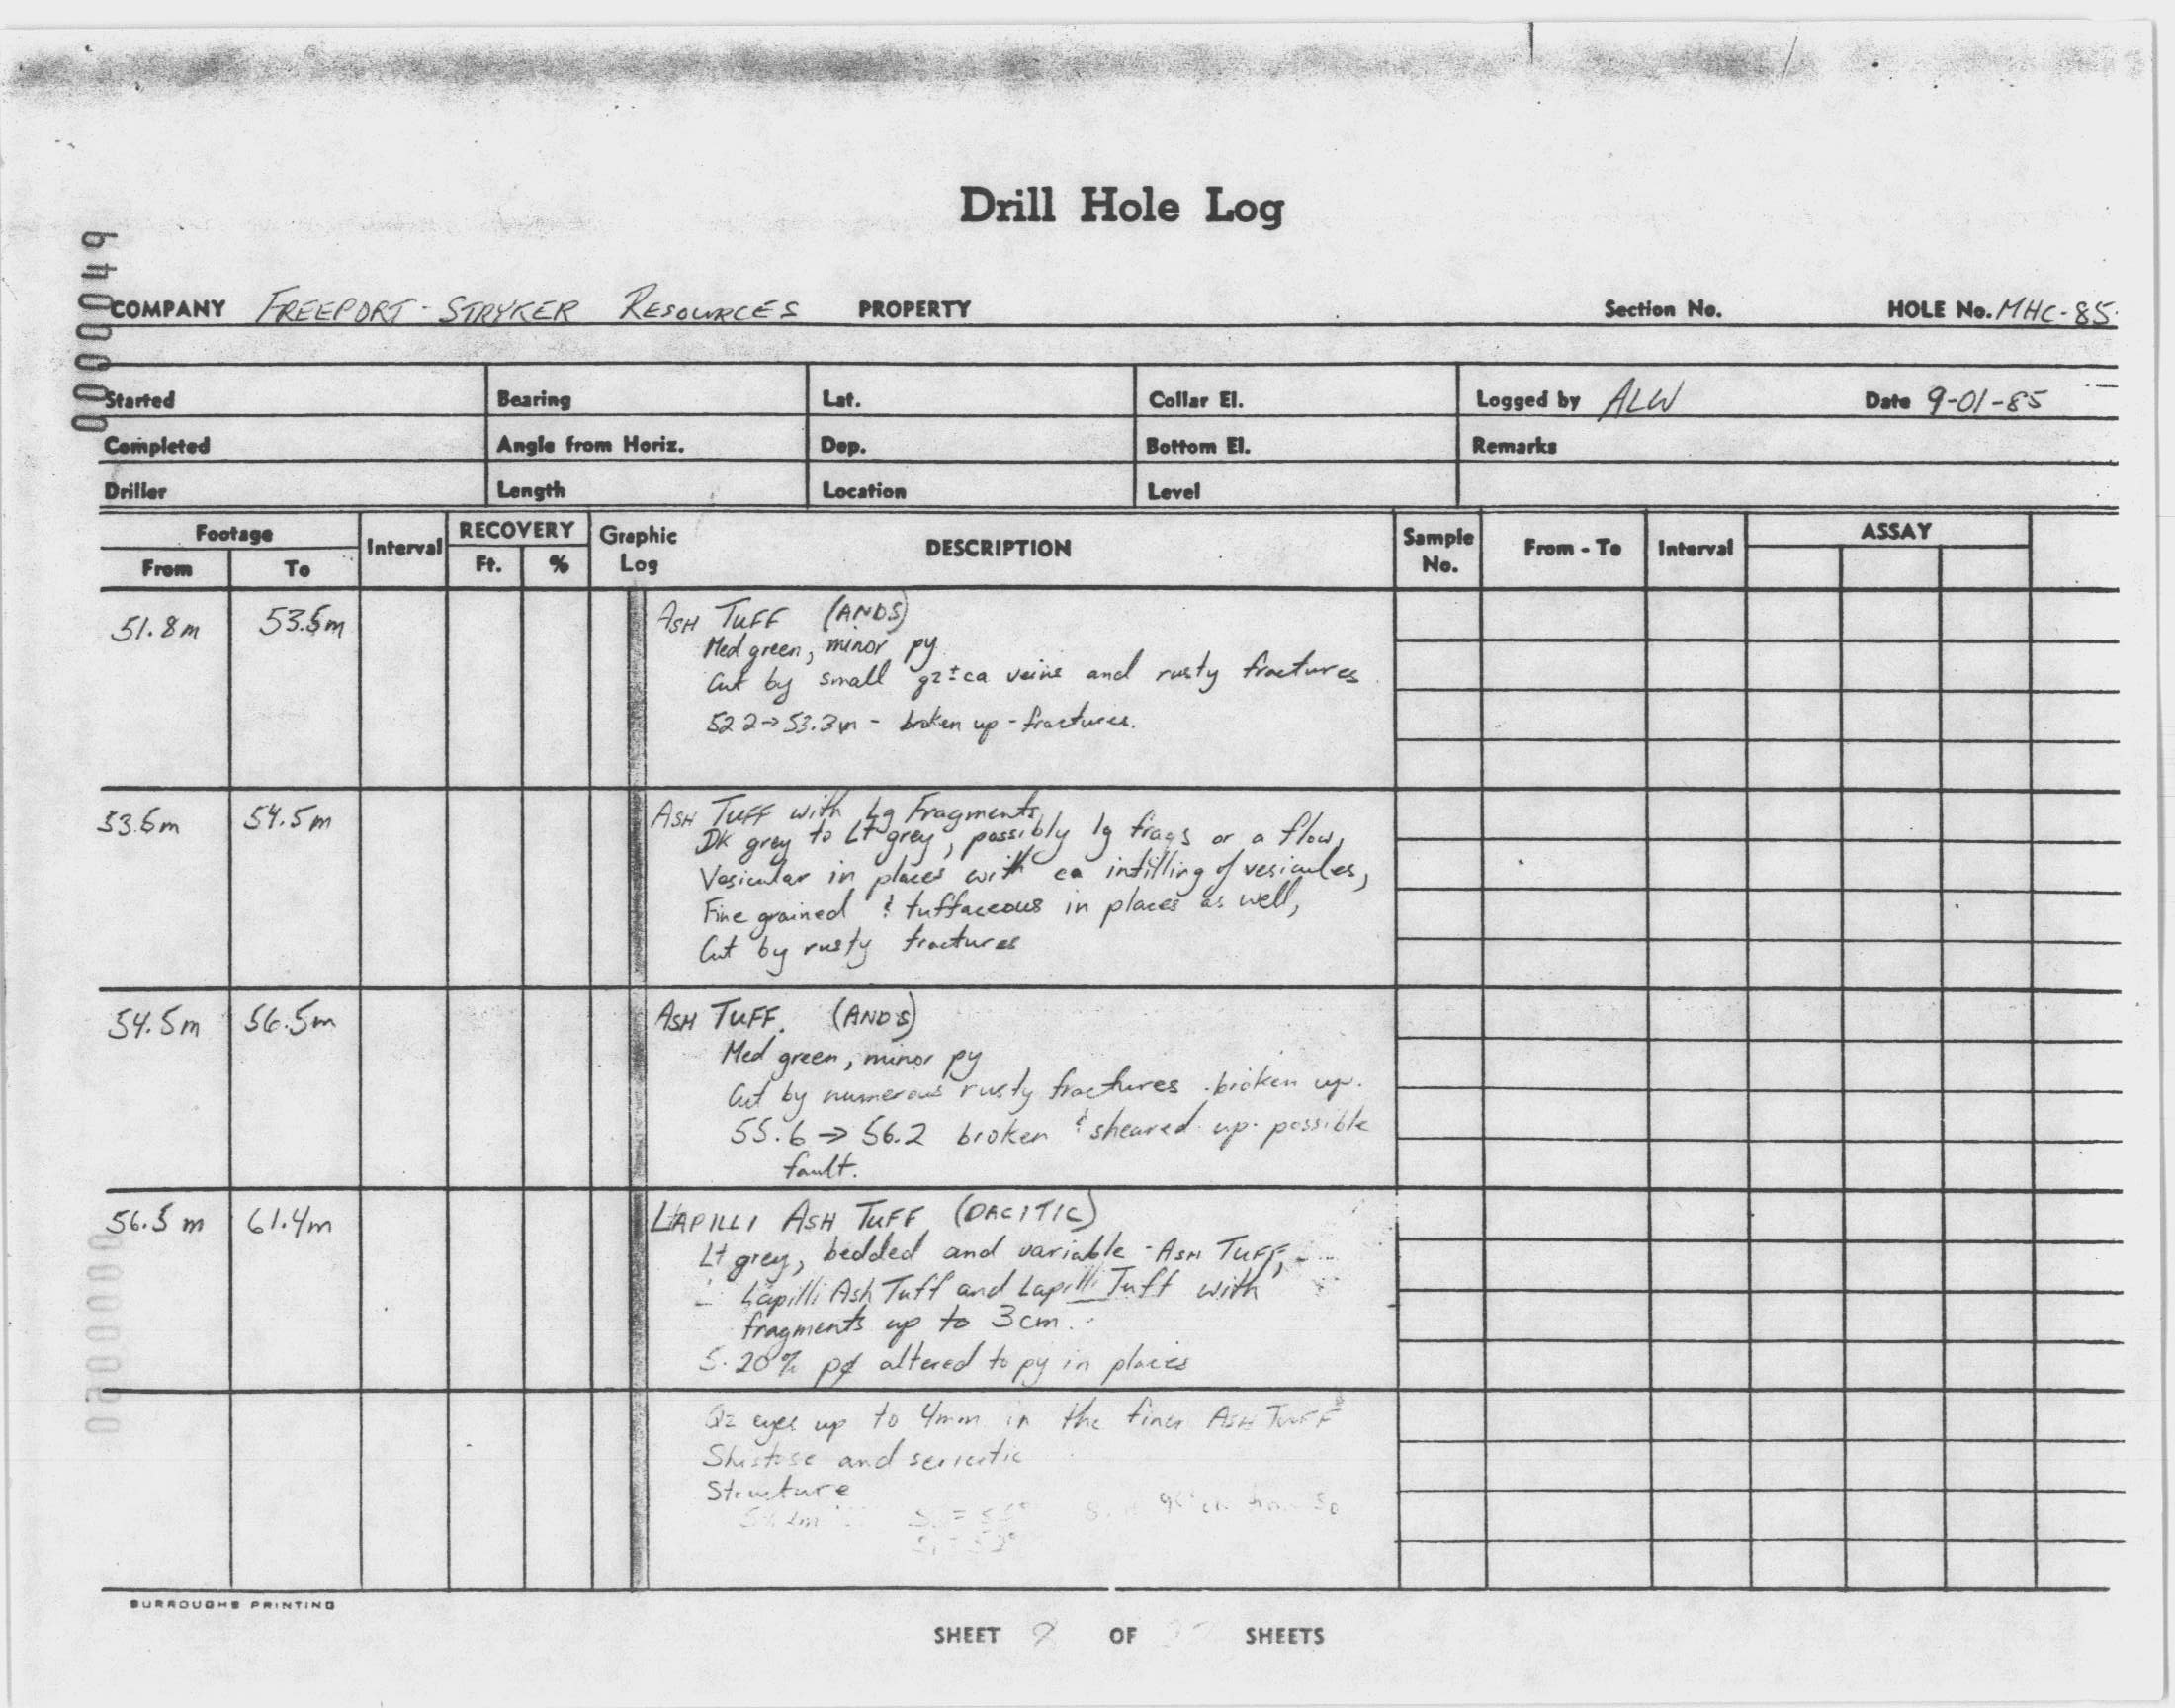 Drill Hole Log
COMPANY FREEPORT - STRYKER RESOURCES PROPERTY Section No. HOLE No. MHC-85
Started Bearing Lat. Collar El. Logged by ALW Date 9-01-85
Completed Angle from Horiz. Dep. Bottom El. Remarks
Driller Length Location Level
Footage Interval RECOVERY Graphic Log DESCRIPTION Sample No. From - To Interval ASSAY
From To Ft. %
51.8m 53.5m ASH TUFF (ANDS)
Med green, minor py
Cut by small qz±ca veins and rusty fractures
52.2→53.3m - broken up - fractures.
53.5m 54.5m ASH TUFF with Lg Fragments
DK grey to Lt grey, possibly lg frags or a flow,
Vesicular in places with ca infilling of vesicules,
Fine grained & tuffaceous in places as well,
Cut by rusty fractures
54.5m 56.5m ASH TUFF. (ANDS)
Med green, minor py
Cut by numerous rusty fractures - broken up.
55.6 → 56.2 broken & sheared up - possible
fault.
56.5 m 61.4m LAPILLI ASH TUFF (DACITIC)
Lt grey, bedded and variable - ASH TUFF,
Lapilli Ash Tuff and Lapilli Tuff with
fragments up to 3cm.
5-20% po altered to py in places
Qz eyes up to 4mm in the finer ASH TUFF
Shistose and sericitic
Structure
BURROUGHS PRINTING
SHEET 8 OF SHEETS
0000049